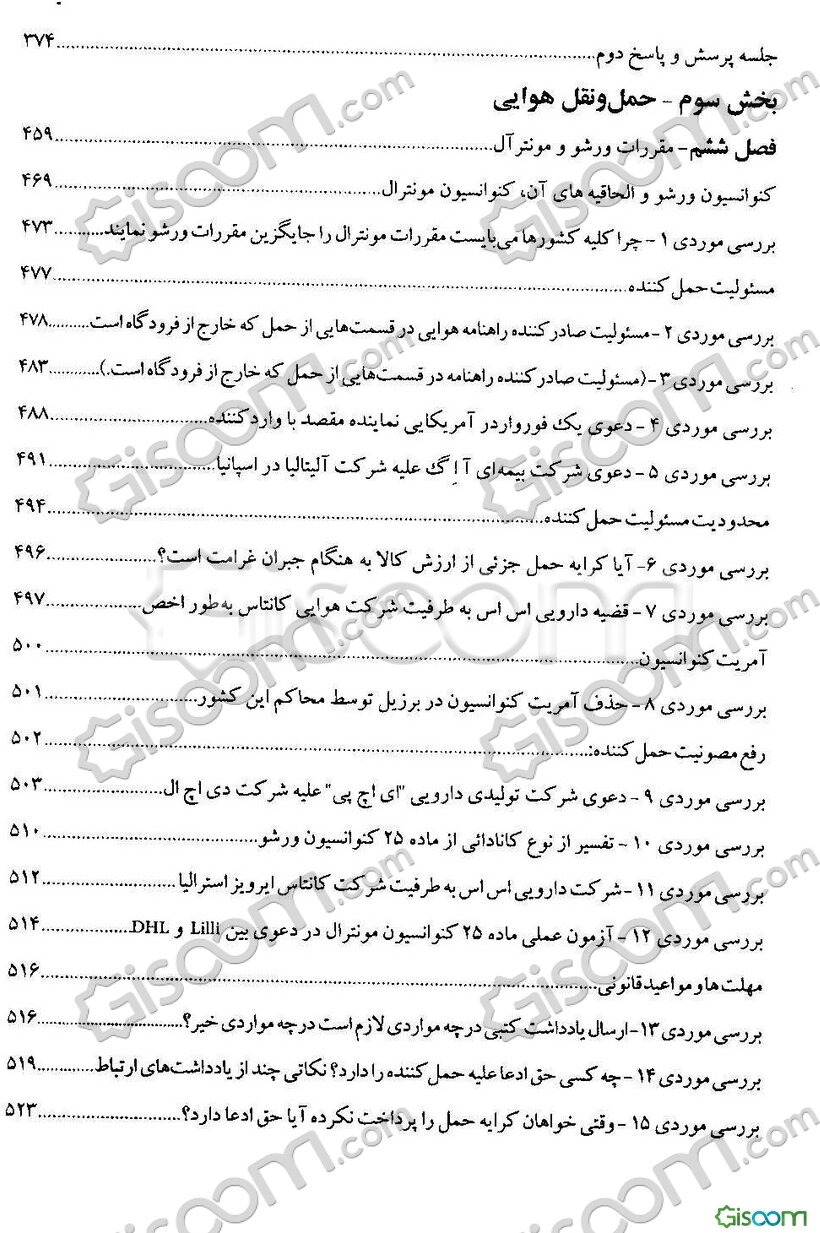 جلسه پرسش و پاسخ دوم........۳۷۴
بخش سوم - حمل‌ونقل هوایی
فصل ششم- مقررات ورشو و مونترآل........۴۵۹
کنوانسیون ورشو و الحاقیه های آن، کنوانسیون مونترال........۴۶۹
بررسی موردی ۱ - چرا کلیه کشورها می‌بایست مقررات مونترال را جایگزین مقررات ورشو نمایند........۴۷۳
مسئولیت حمل کننده........۴۷۷
بررسی موردی ۲ - مسئولیت صادرکننده راهنامه هوایی در قسمت‌هایی از حمل که خارج از فرودگاه است........۴۷۸
بررسی موردی ۳ - (مسئولیت صادرکننده راهنامه در قسمت‌هایی از حمل که خارج از فرودگاه است.)........۴۸۳
بررسی موردی ۴ - دعوی یک فورواردر آمریکایی نماینده مقصد با واردکننده........۴۸۸
بررسی موردی ۵ - دعوی شرکت بیمه‌ای آ اِ گ علیه شرکت آلیتالیا در اسپانیا........۴۹۱
محدودیت مسئولیت حمل کننده........۴۹۴
بررسی موردی ۶- آیا کرایه حمل جزئی از ارزش کالا به هنگام جبران غرامت است؟........۴۹۶
بررسی موردی ۷ - قضیه دارویی اس اس به طرفیت شرکت هوایی کانتاس به‌طور اخص........۴۹۷
آمریت کنوانسیون........۵۰۰
بررسی موردی ۸ - حذف آمریت کنوانسیون در برزیل توسط محاکم این کشور........۵۰۱
رفع مصونیت حمل کننده:........۵۰۲
بررسی موردی ۹ - دعوی شرکت تولیدی دارویی "ای اچ پی" علیه شرکت دی اچ ال........۵۰۳
بررسی موردی ۱۰ - تفسیر از نوع کانادائی از ماده ۲۵ کنوانسیون ورشو........۵۱۰
بررسی موردی ۱۱ - شرکت دارویی اس اس به طرفیت شرکت کانتاس ایرویز استرالیا........۵۱۲
بررسی موردی ۱۲ - آزمون عملی ماده ۲۵ کنوانسیون مونترال در دعوی بین Lilli و DHL........۵۱۴
مهلت ها و مواعید قانونی........۵۱۶
بررسی موردی ۱۳- ارسال یادداشت کتبی درچه مواردی لازم است درچه مواردی خیر؟........۵۱۶
بررسی موردی ۱۴ - چه کسی حق ادعا علیه حمل کننده را دارد؟ نکاتی چند از یادداشت‌های ارتباط........۵۱۹
بررسی موردی ۱۵ - وقتی خواهان کرایه حمل را پرداخت نکرده آیا حق ادعا دارد؟........۵۲۳
Gisoom